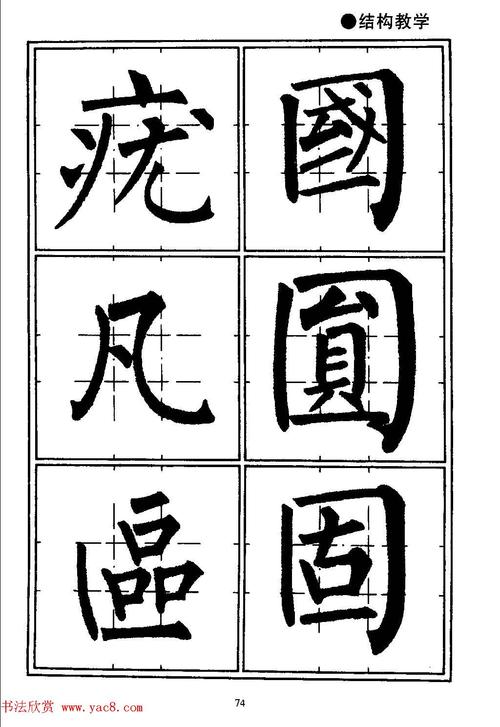 ●结构教学
國
圓
固
疣
凡
區
书法欣赏 www.yac8.com
74